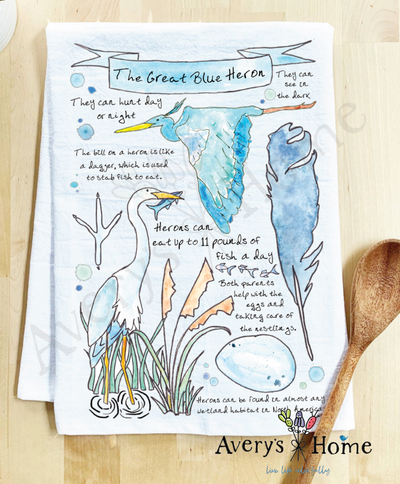 The Great Blue Heron
They can
see in
the dark
They can hunt day
or night
The bill on a heron is like
a dagger, which is used
to stab fish to eat.
Herons can
eat up to 11 pounds of
fish a day
Both parents
help with the
eggs and
taking care of
the nestlings.
Herons can be found in almost any
wetland habitat in North America
Avery's Home
live life naturally
Avery's Home